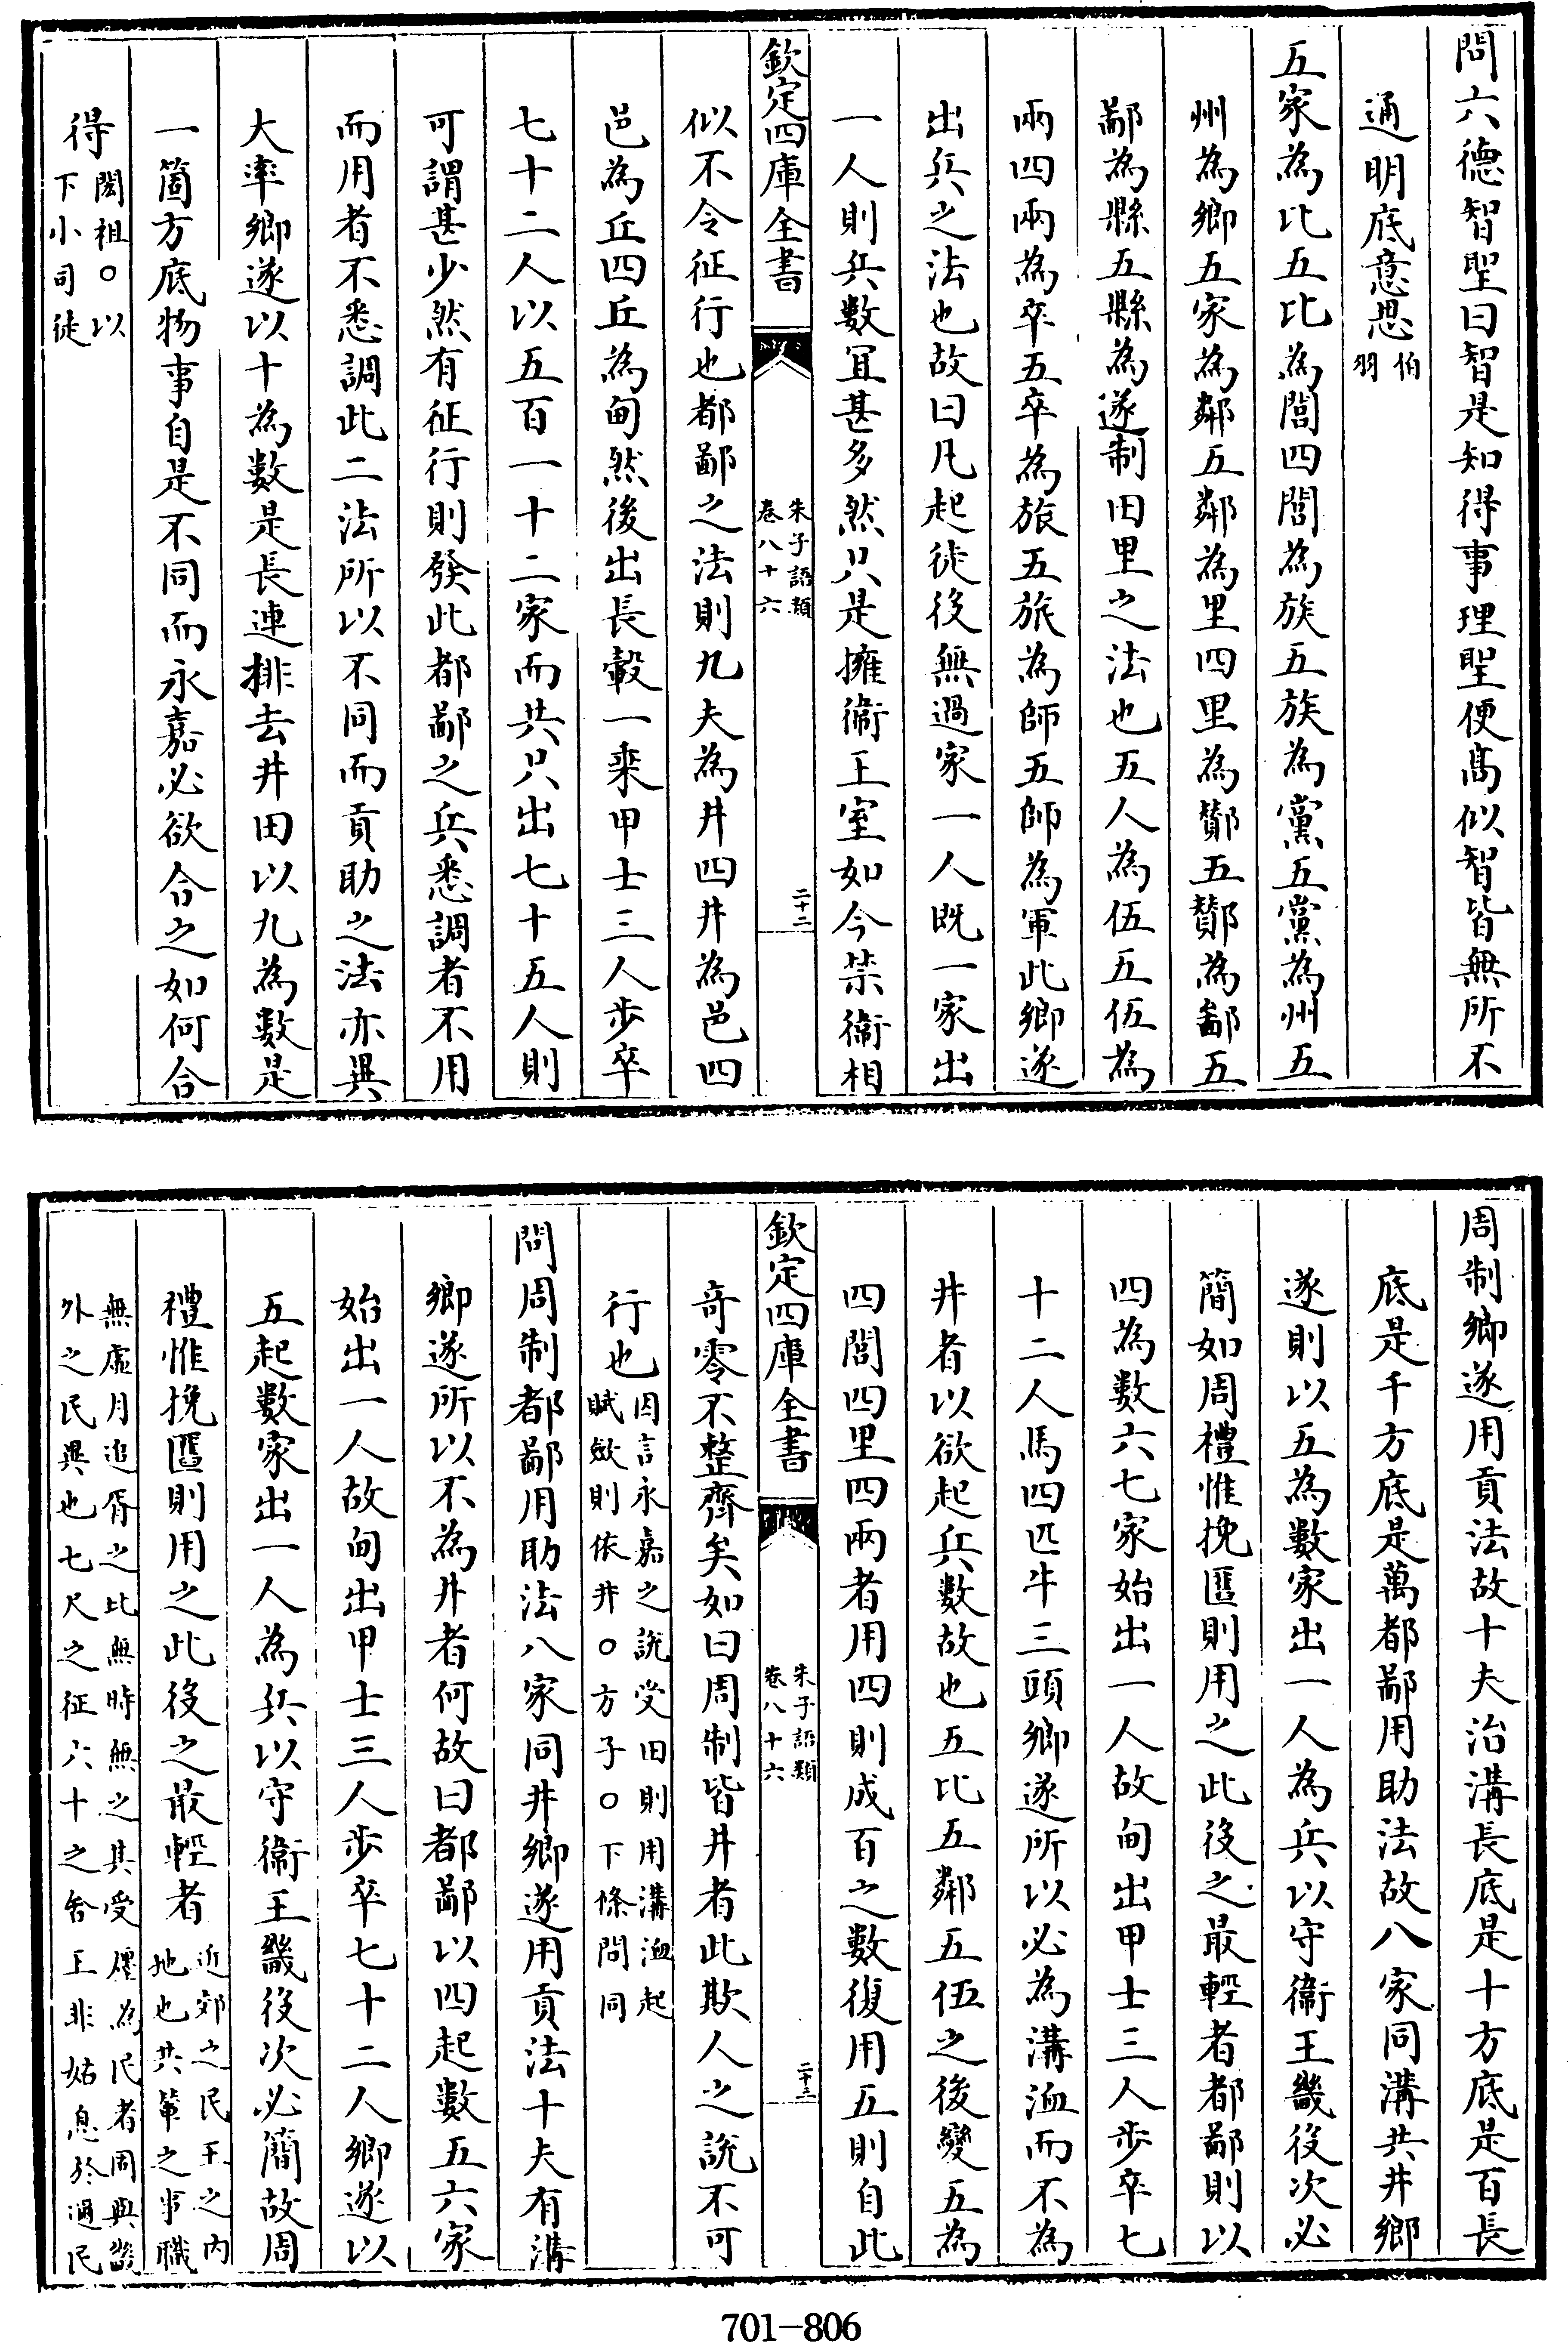 問六德智聖曰智是知得事理聖便髙似智皆無所不
通明底意思伯羽
五家為比五比為閭四閭為族五族為黨五黨為州五
州為鄉五家為鄰五鄰為里四里為酇五酇為鄙五
鄙為縣五縣為遂制田里之法也五人為伍五伍為
兩四兩為卒五卒為旅五旅為師五師為軍此鄉遂
出兵之法也故曰凡起徒役無過家一人既一家出
一人則兵數宜甚多然只是擁衞王室如今禁衞相
欽定四庫全書
朱子語類
卷八十六
二十二
似不令征行也都鄙之法則九夫為井四井為邑四
邑為丘四丘為甸然後出長轂一乗甲士三人步卒
七十二人以五百一十二家而共只出七十五人則
可謂甚少然有征行則發此都鄙之兵悉調者不用
而用者不悉調此二法所以不同而貢助之法亦異
大率鄉遂以十為數是長連排去井田以九為數是
一箇方底物事自是不同而永嘉必欲合之如何合
得閎祖○以下小司徒
周制鄉遂用貢法故十夫治溝長底是十方底是百長
底是千方底是萬都鄙用助法故八家同溝共井鄉
遂則以五為數家出一人為兵以守衞王畿役次必
簡如周禮惟挽匶則用之此役之最輕者都鄙則以
四為數六七家始出一人故甸出甲士三人步卒七
十二人馬四匹牛三頭鄉遂所以必為溝洫而不為
井者以欲起兵數故也五比五鄰五伍之後變五為
四閭四里四兩者用四則成百之數復用五則自此
欽定四庫全書
朱子語類
卷八十六
二十三
竒零不整齊矣如曰周制皆井者此欺人之說不可
行也因言永嘉之説受田則用溝洫起賦斂則依井○方子○下條問同
問周制都鄙用助法八家同井鄉遂用貢法十夫有溝
鄉遂所以不為井者何故曰都鄙以四起數五六家
始出一人故甸出甲士三人步卒七十二人鄉遂以
五起數家出一人為兵以守衞王畿役次必簡故周
禮惟挽匶則用之此役之最輕者近郊之民王之内地也共輦之事職
無虛月追胥之比無時無之其受廛為民者固與畿外之民異也七尺之征六十之舍王非姑息於邇民
701-806